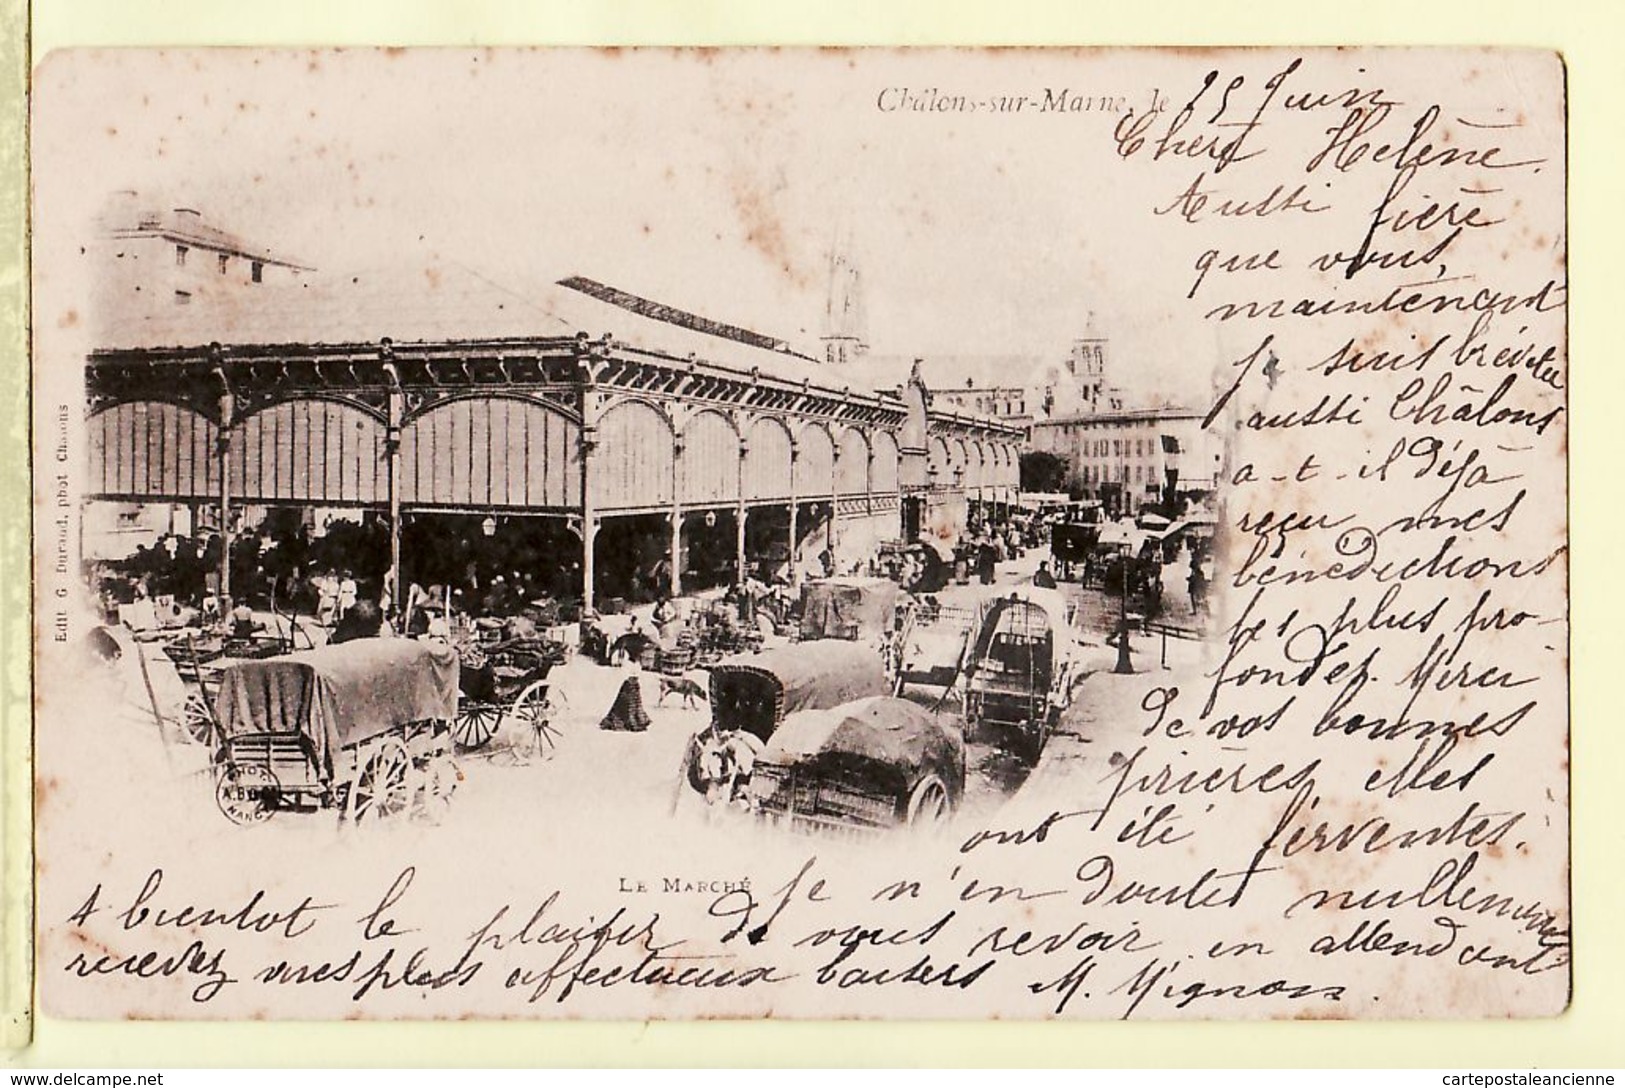 Châlons-sur-Marne, le 25 Juin
Chère Helène.
Aussi fière
que vous,
maintenant
je suis brévetée
aussi Châlons
a-t-il déjà
reçu mes
bénédictions
les plus pro-
fondes. Merci
de vos bonnes
prières elles
ont été ferventes.
Je n'en doutes nullement
LE MARCHÉ
A bientot le plaisir de vous revoir en attendant
recevez mes plus affectueux baisers M. Mignon.
Edit G Durand, phot Chalons
PHOT
A.B
NANCY
delcampe.net
cartepostaleancienne